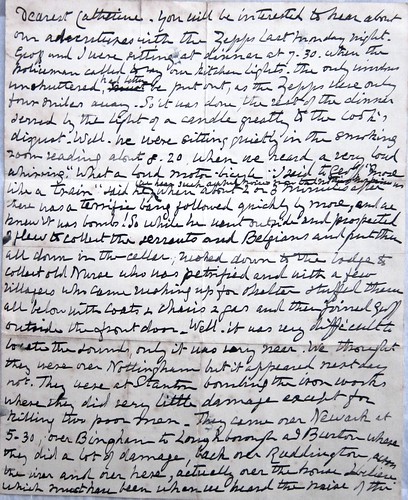 Dearest Catherine. You will be interested to hear about
our adventures with the Zepps last Monday night.
Geoff and I were sitting at dinner at 7-30. when the
Policeman called to say our kitchen lights. the only windows
unshuttered, must be put out, as the Zepps were only
four miles away. So it was done & the rest of the dinner
served by the light of a candle greatly to the Cook's
disgust. Well. we were sitting quietly in the smoking
room reading about 8.20. when we heard a very loud
whirring. "What a loud motor-bicycle" I said to Geoff. "More
like a train" said he when about 2 or 3 minutes after
there was a terrific bang followed quickly by more, and we
knew it was bombs! So while he went outside and prospected
I flew to collect the servants and Belgians and put them
all down in the cellar, rushed down to the lodge to
collect old Nurse who was petrified and with a few
villagers who came rushing up for shelter stuffed them
all below with coats & chairs & gas and then joined Geoff
outside the front door. Well it was very difficult to
locate the sounds, only it was very near. We thought
they were over Nottingham but it appeared next day
not. They were at Stanton bombing the iron works
where they did very little damage except for
killing two poor men. They came over Newark at
5-30, over Bingham to Loughborough and Burton where
they did a lot of damage, back over Ruddington, across
the river and over here, actually over the house I believe
which must have been when we heard the noise of the